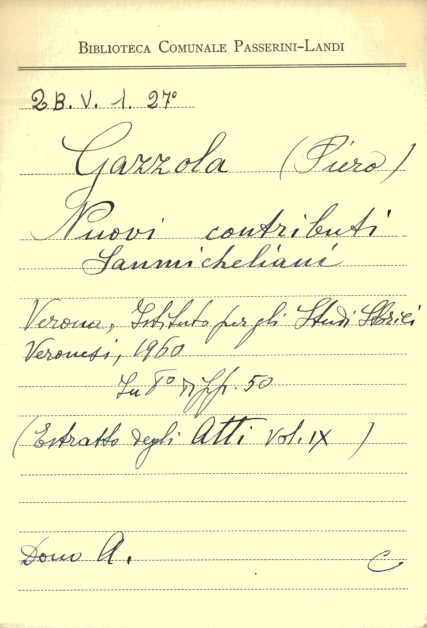 BIBLIOTECA COMUNALE PASSERINI-LANDI
2B. V. 1. 27°
Gazzola (Piero)
Nuovi contributi
Sanmicheliani
Verona, Istituto per gli Studi Storici
Veronesi, 1960
In 8° di pp. 50
(Estratto degli Atti Vol. IX )
Dono A.
C